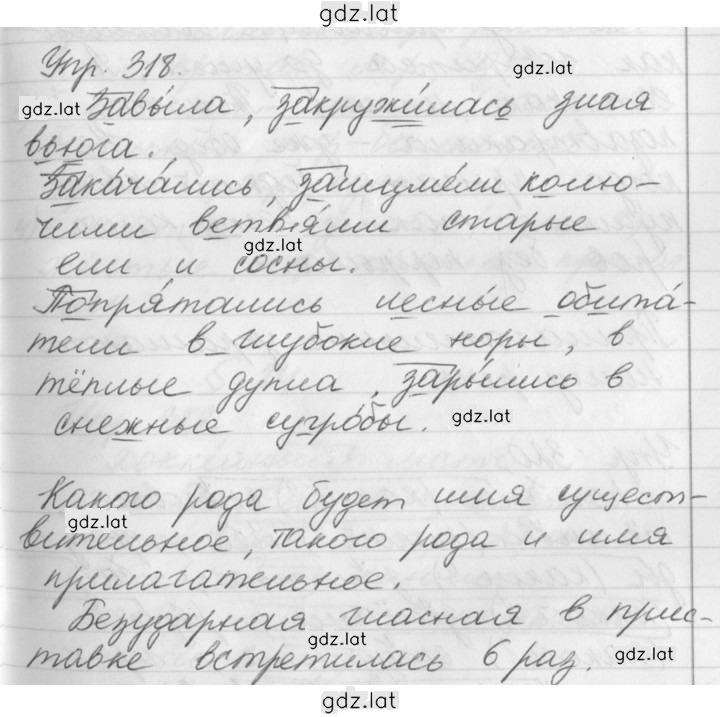 gdz.lat
Упр. 318.
gdz.lat
gdz.lat
Завы́ла, закружи́лась злая
вьюга.
Закача́лись, зашуме́ли колю-
чими ветвя́ми старые
gdz.lat
ели и сосны.
Попря́тались лесны́е обита́-
тели в глубокие норы, в
тёплые дупла, зары́лись в
снежные сугро́бы.
gdz.lat
Какого рода будет имя сущест-
gdz.lat
вительное, такого рода и имя
прилагательное.
Безударная гласная в прис-
gdz.lat
тавке встретилась 6 раз.
gdz.lat
gdz.lat